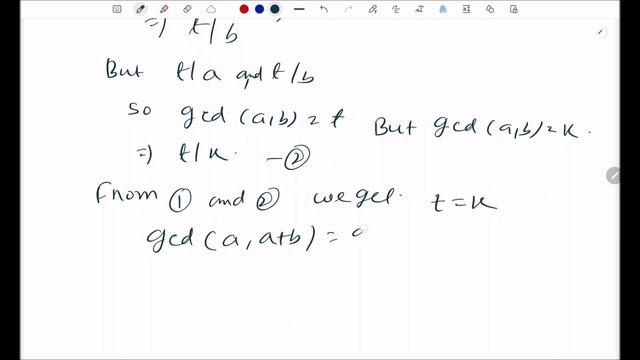 =) t/b
But t/a and t/b
so gcd (a,b) = t But gcd (a,b) = k.
=) t/k. -②
From ① and ② we get. t = k
gcd (a, a+b) =